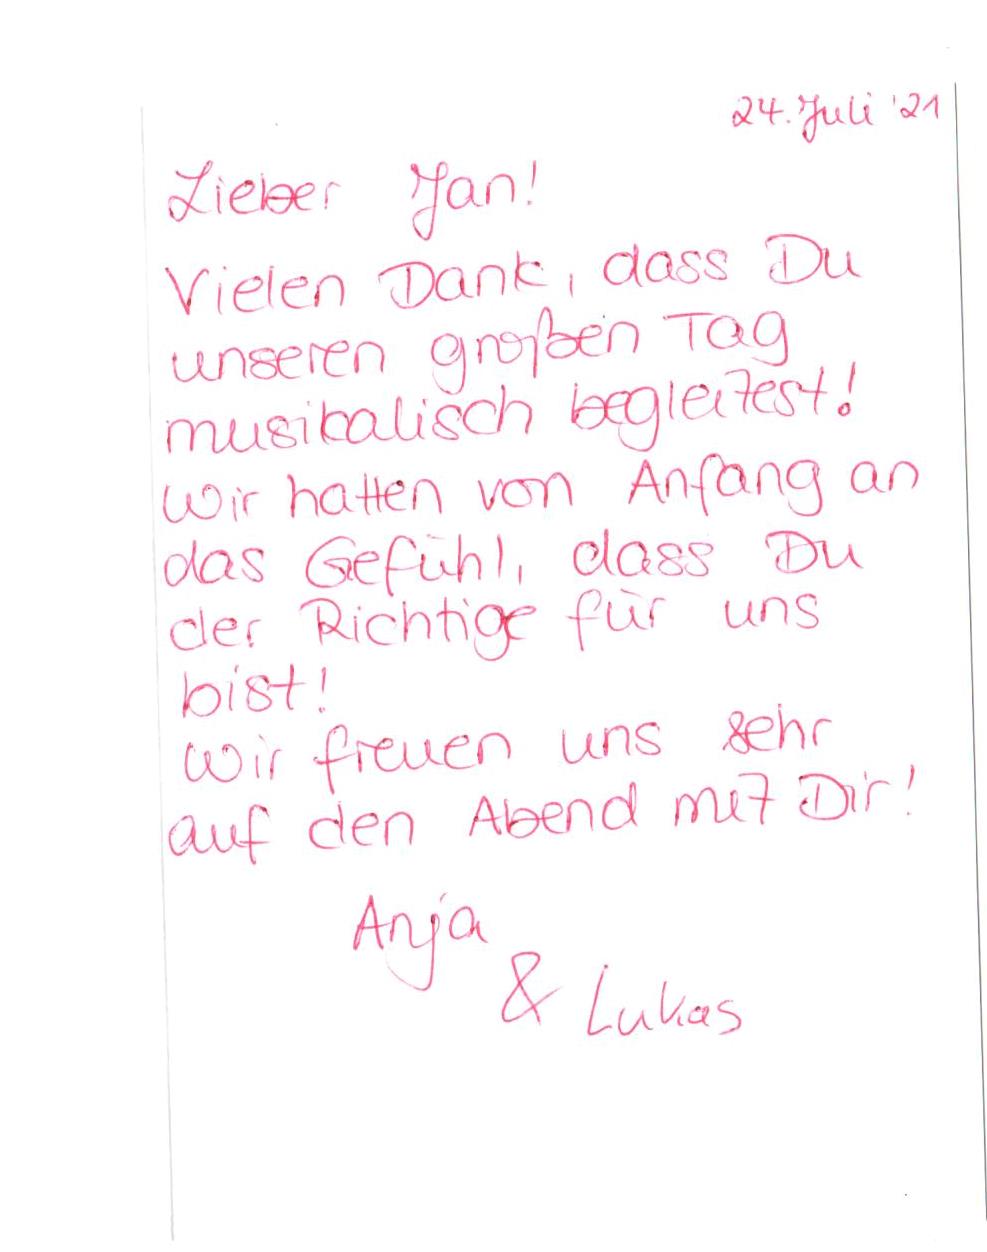 24. Juli '21
Lieber Jan!
Vielen Dank, dass Du
unseren großen Tag
musikalisch begleitest!
Wir hatten von Anfang an
das Gefühl, dass Du
der Richtige für uns
bist!
Wir freuen uns sehr
auf den Abend mit Dir!
Anja
& Lukas